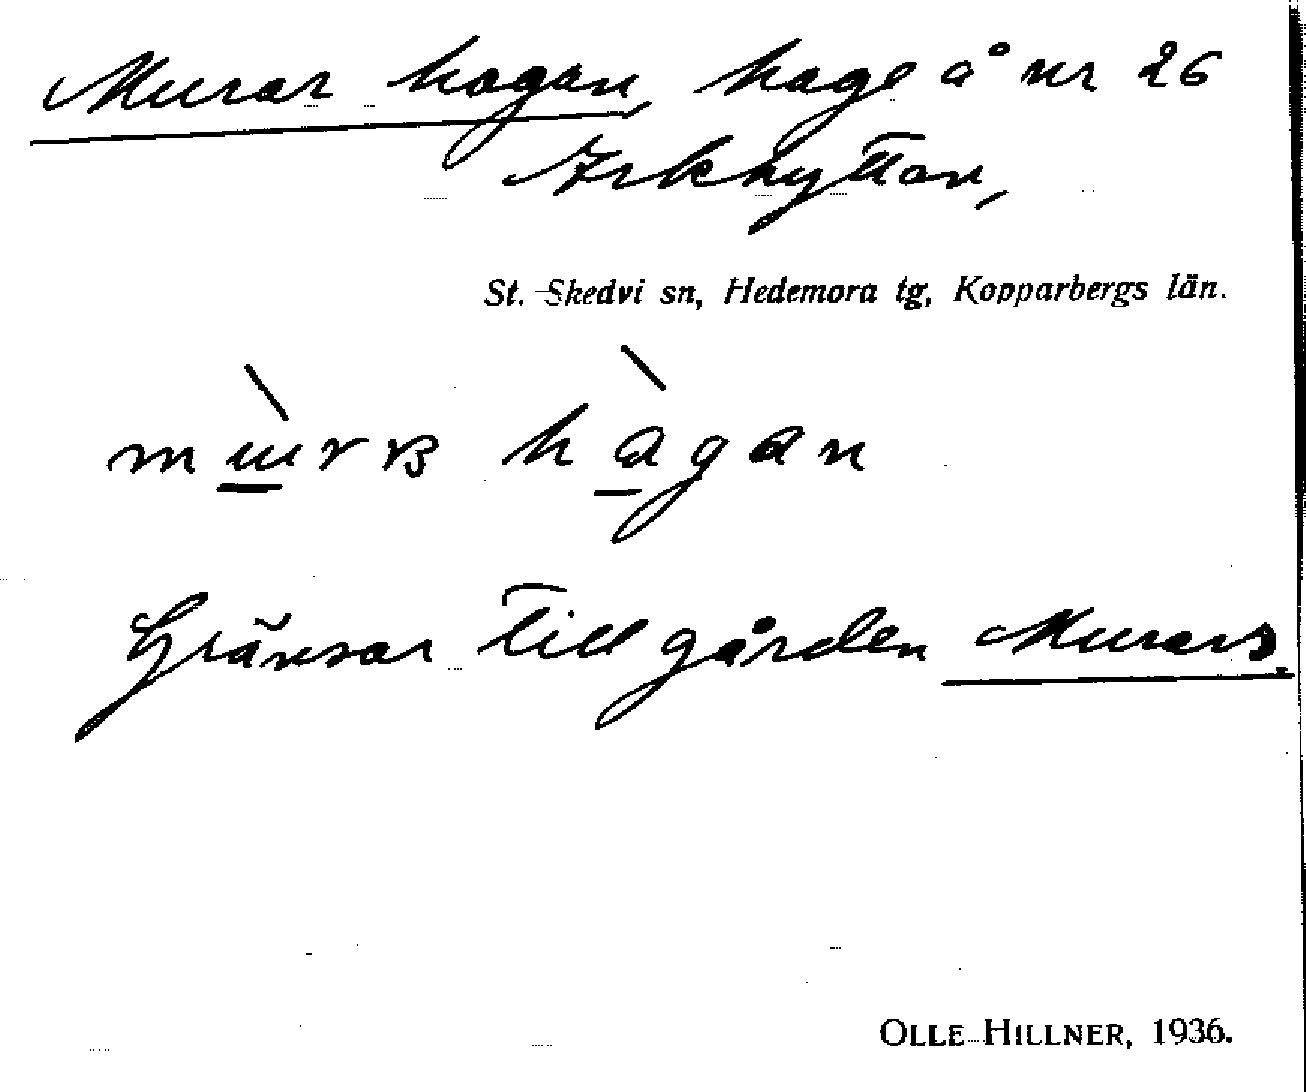 Murar hagan, hage å nr 26
Arkhyttan,
St. Skedvi sn, Hedemora tg, Kopparbergs län.
hàgan
Gränsar till gården Murars.
OLLE HILLNER, 1936.